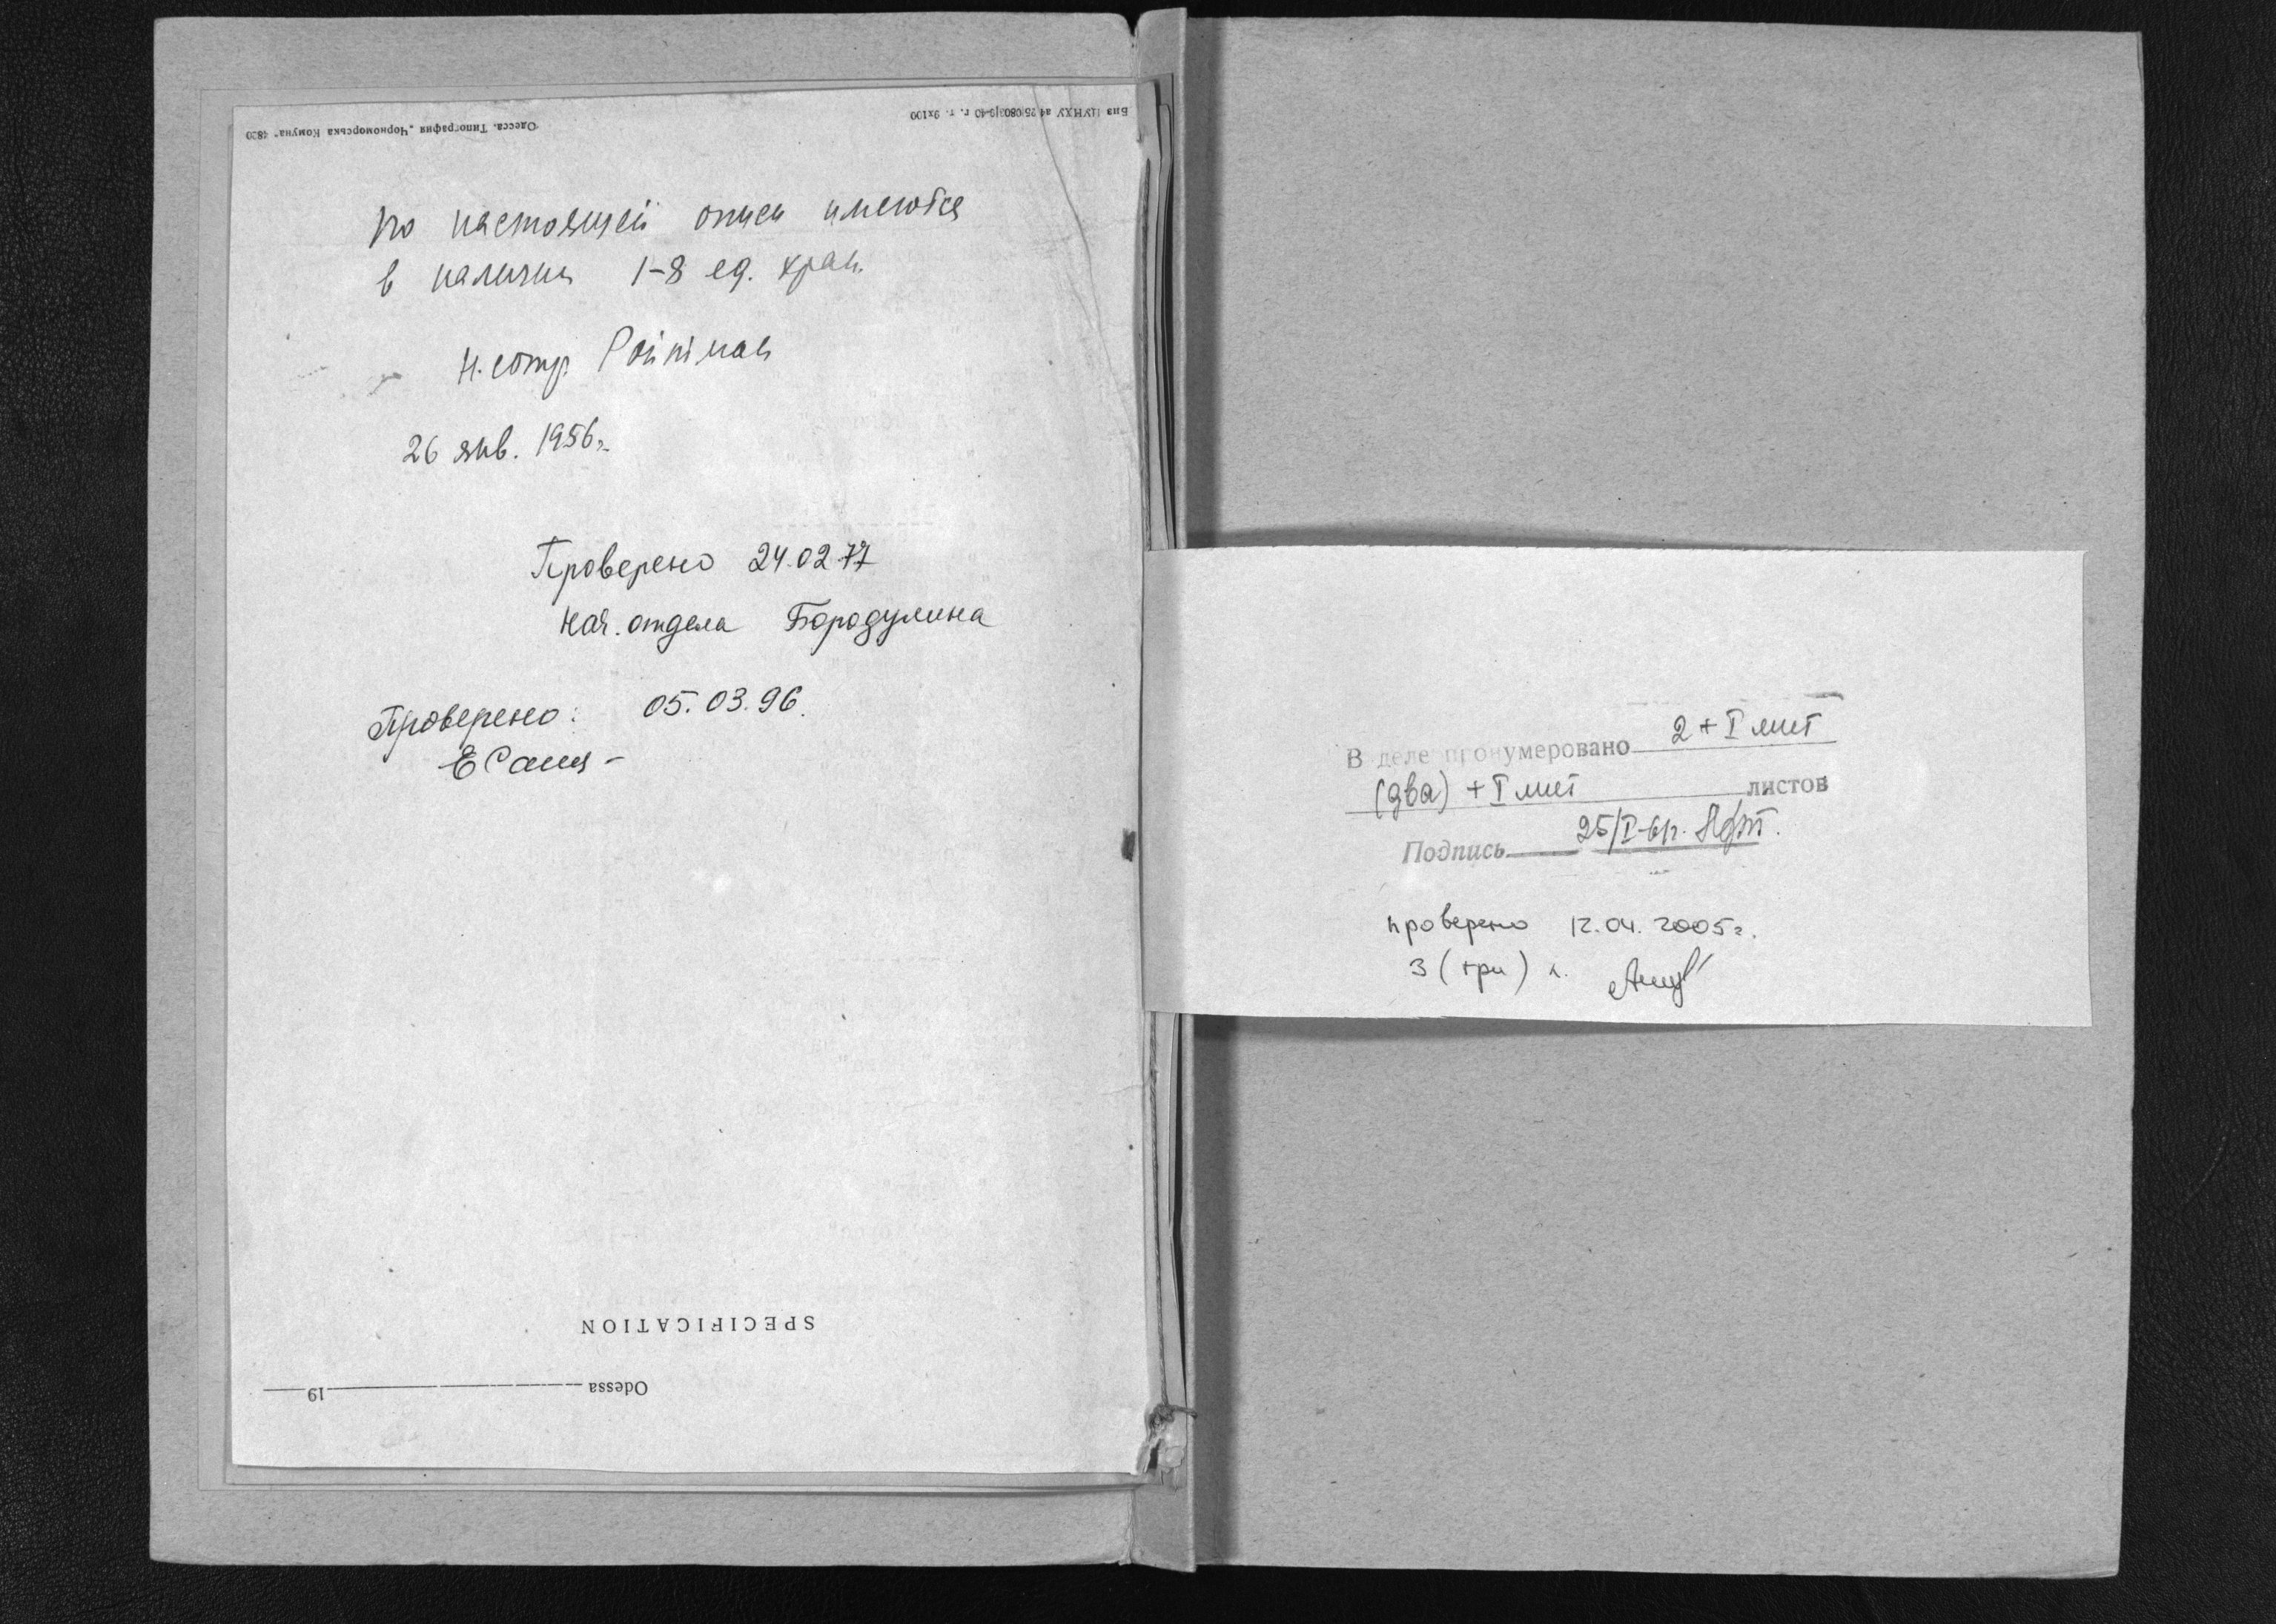 Одесса. Типография „Чорноморська Комуна“ 4820
по настоящей описи имеются
в наличии 1-8 ед. хран.
Н. сотр. Ройтман
26 янв. 1956г.
Проверено 24.02.77
Нач. отдела Бородулина
Проверено: 05.03.96.
SPECIFICATION
Odessa 19
В деле пронумеровано 2 + I лист
(два) + I лист листов
Подпись 25/I-61г.
проверено 12.04.2005г.
3 (три) л.